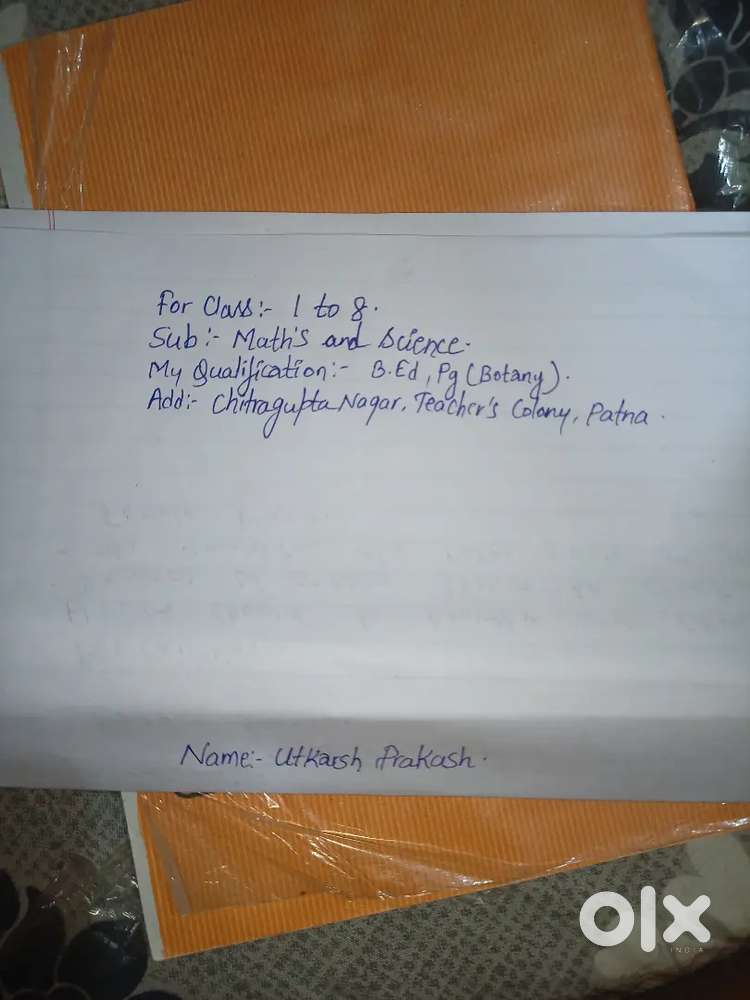 For Class:- 1 to 8.
Sub:- Math's and Science.
My Qualification:- B.Ed, Pg (Botany).
Add:- Chitragupta Nagar, Teacher's Colony, Patna.
Name:- Utkarsh Prakash.
olx
INDIA